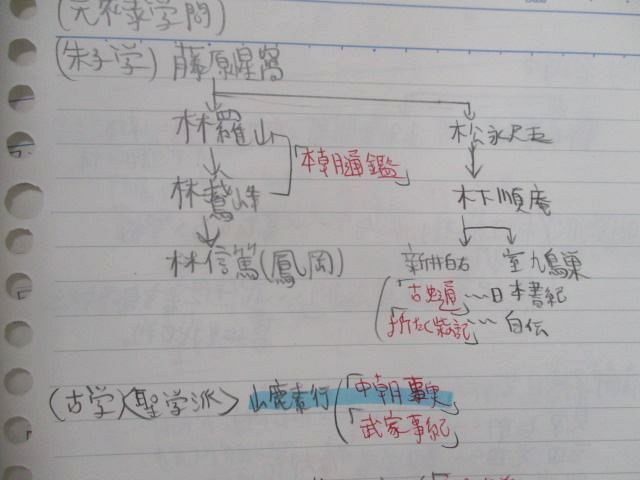 (元禄学問)
(朱子学) 藤原惺窩
林羅山
松永尺五
「本朝通鑑」
林鵞峰
木下順庵
林信篤(鳳岡)
新井白石
室鳩巣
「古史通」〜日本書紀
「折たく柴記」〜自伝
(古学)〈聖学派〉 山鹿素行
「中朝事実」
「武家事紀」